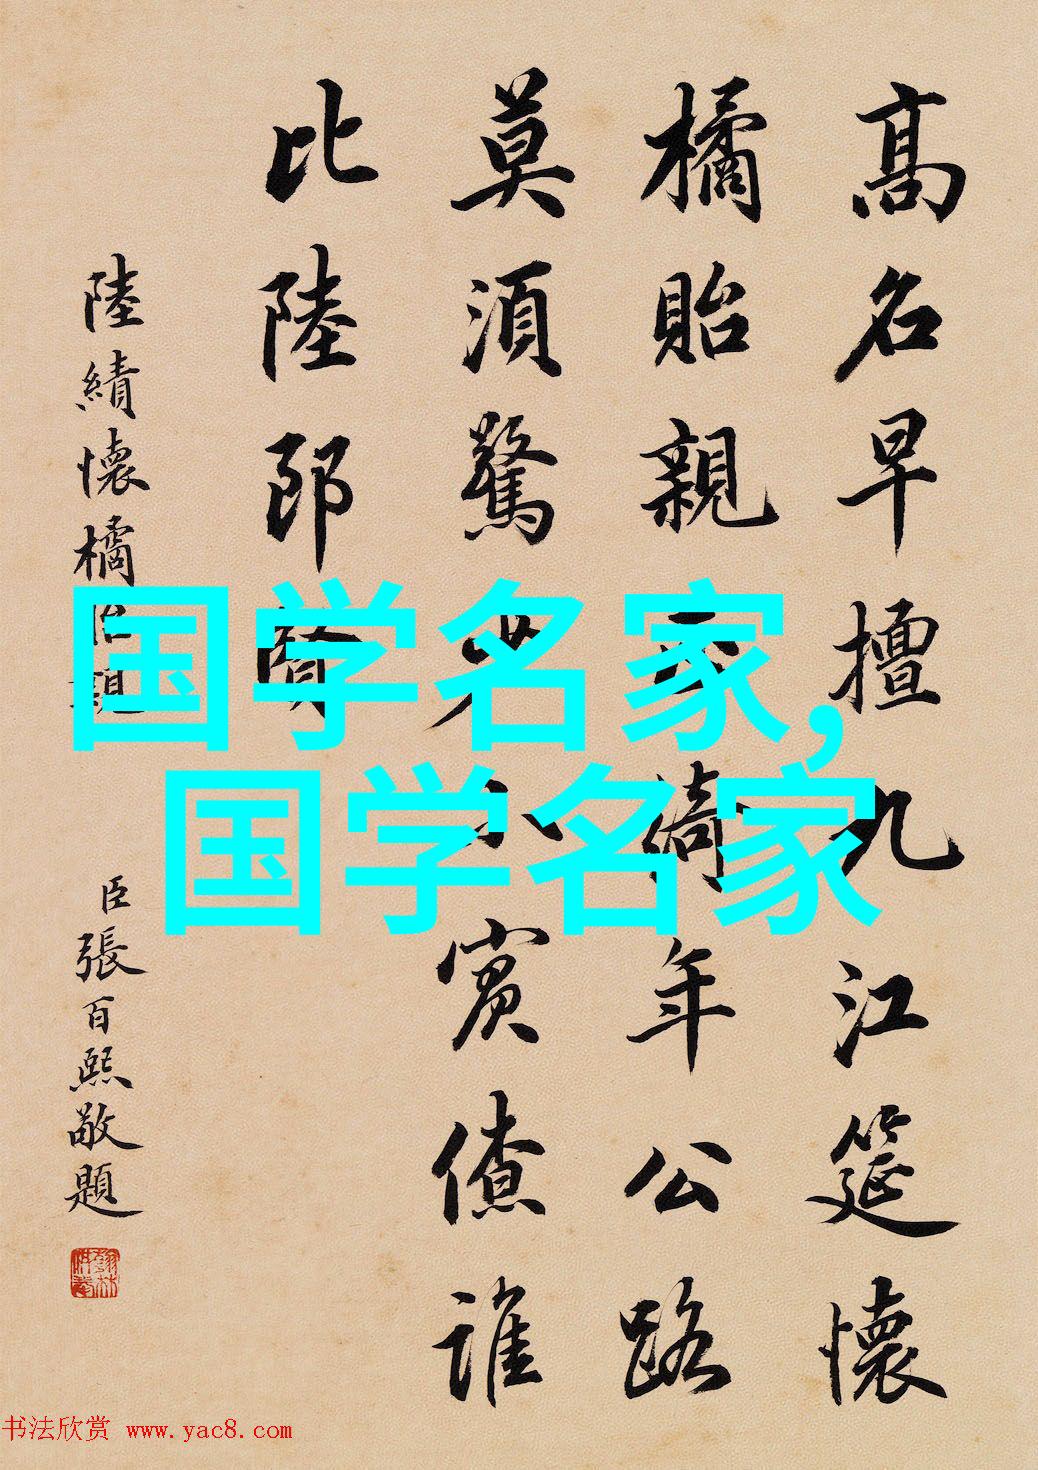 高名早擅九江筵懷
橘貽親綺年公路
莫須驚賓僚誰
比陸郎賢
陸績懷橘貽親
臣張百熙敬題
国学名家,
国学名家
书法欣赏 www.yac8.com